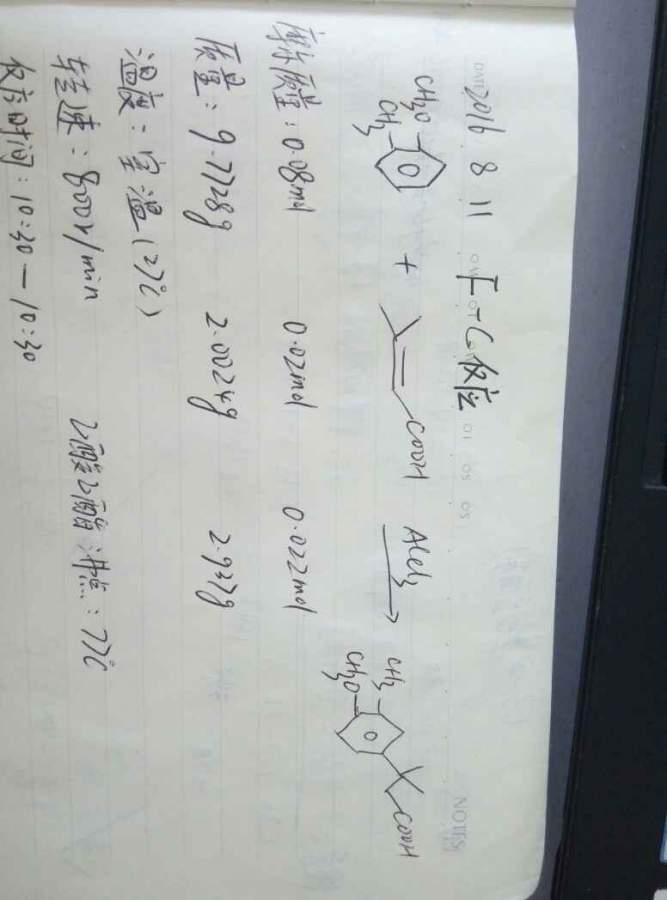 DATE 2016 8 11 F-C反应
CH₃O CH₃ + COOH AlCl₃ → CH₃ CH₃O COOH
摩尔质量：0.08mol 0.02mol 0.022mol
质量：9.7728g 2.0024g 2.937g
温度：室温（27℃）
转速：800r/min 乙酸乙酯沸点：77℃
反应时间：10:30—10:30
NOTES